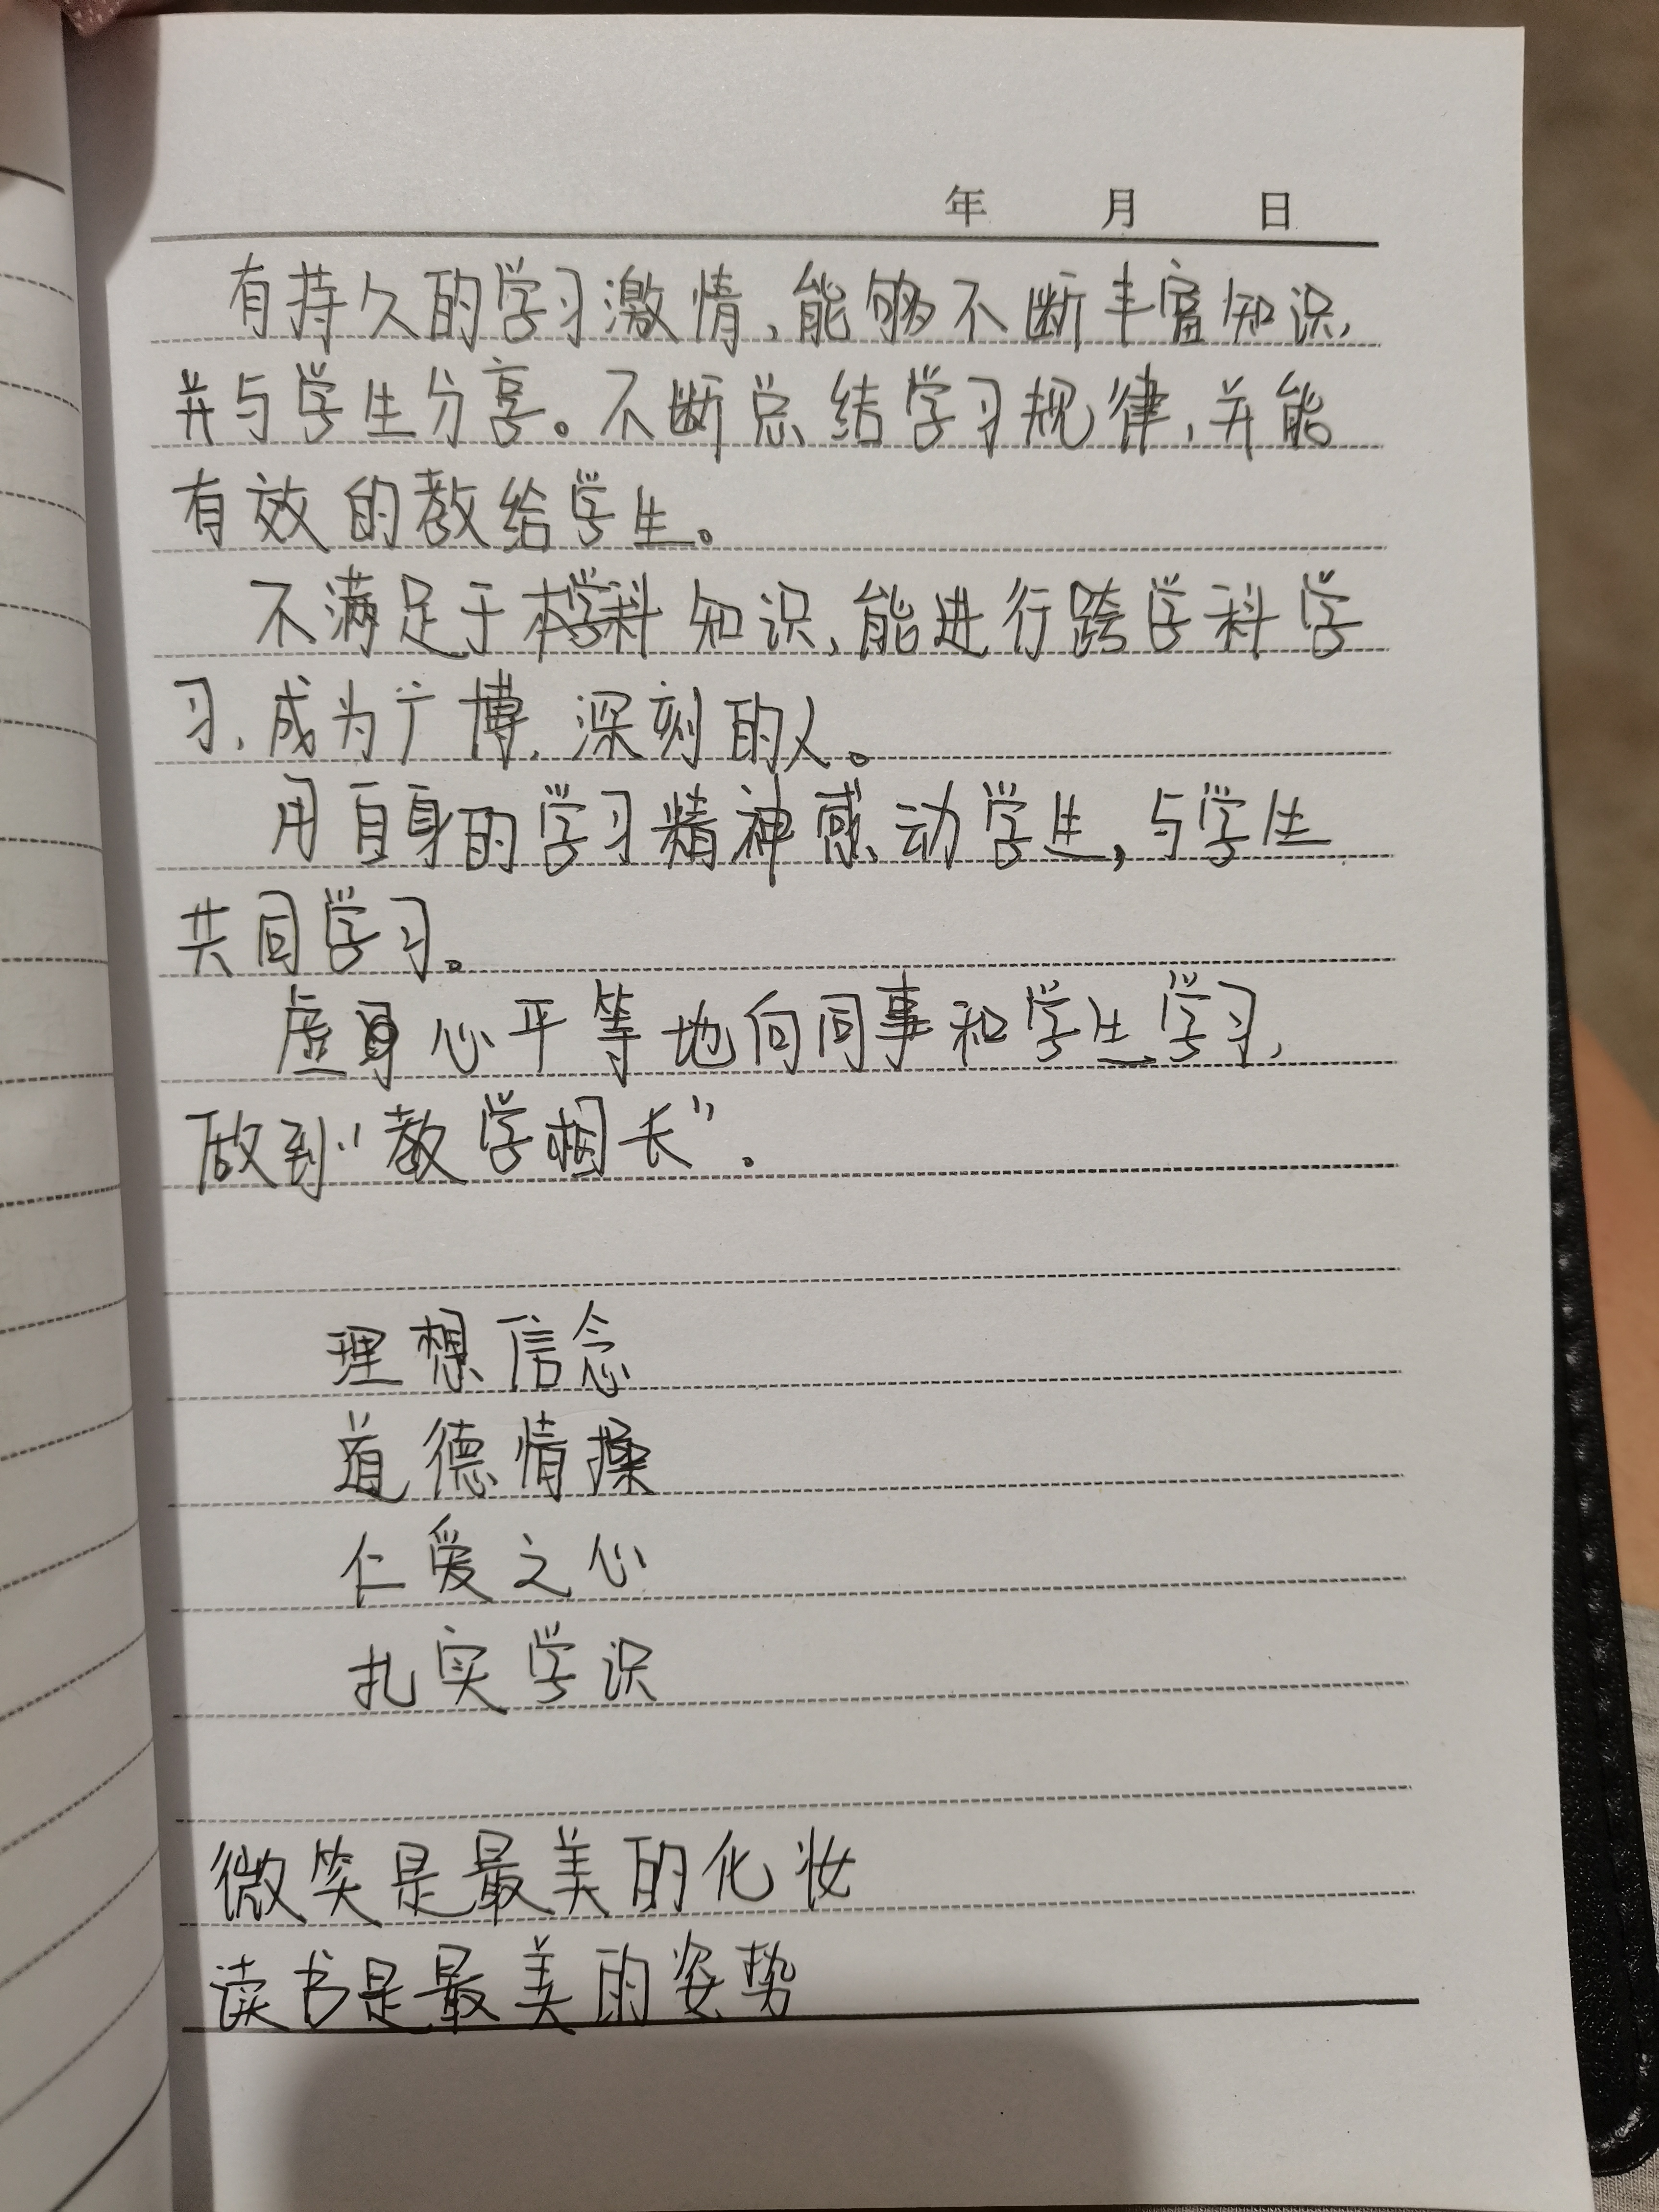 年 月 日
有持久的学习激情、能够不断丰富知识,
并与学生分享。不断总结学习规律,并能
有效的教给学生。
不满足于本学科知识,能进行跨学科学
习,成为广博、深刻的人。
用自身的学习精神感动学生,与学生
共同学习。
虚心平等地向同事和学生学习,
做到“教学相长”.
理想信念
道德情操
仁爱之心
扎实学识
微笑是最美的化妆
读书是最美的姿势